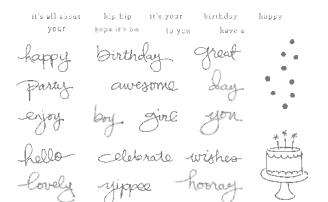 it's all about hip hip it's your birthday happy
your hope it's our to you have a
happy birthday great
party awesome day
enjoy boy girl you
hello celebrate wishes
lovely yippee hooray